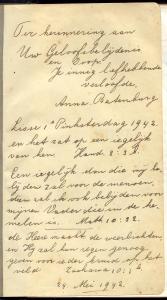 Ter herinnering aan
Uw Geloofsbelijdenis
en Doop.
Je innig liefhebbende
verloofde,
Anna Batenburg
Lisse 1e Pinksterdag 1942
en het zat op een iegelijk
van hen Hand. 2:3b.
Een iegelijk dan die mij be-
lijden zal voor de menschen,
dien zal ik ook belijden voor
mijnen Vader die in de he-
melen is. Matth 10:32.
de Heere maakt de weerlichten
en Hij zal hen regen genoeg
geven voor ieder kruid op het
veld Zacharia 10:1b
24 Mei 1942.